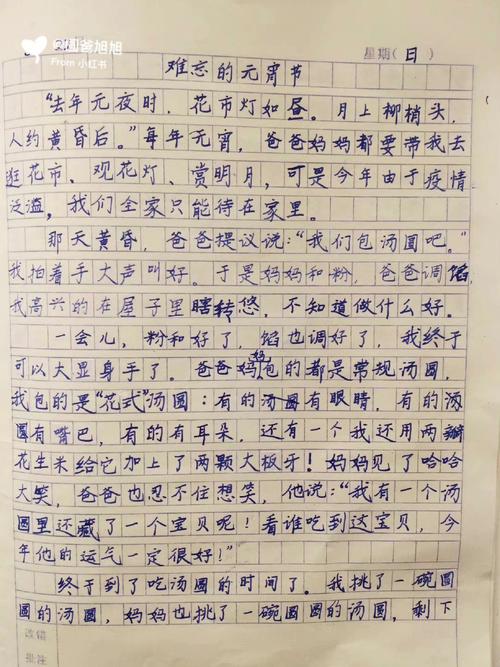 @圆爸旭旭
From 小红书
星期(日)
难忘的元宵节
“去年元夜时，花市灯如昼。月上柳梢头，
人约黄昏后。”每年元宵，爸爸妈妈都要带我去
逛花市、观花灯、赏明月，可是今年由于疫情
泛滥，我们全家只能待在家里。
那天黄昏，爸爸提议说：“我们包汤圆吧。”
我拍着手大声叫好。于是妈妈和粉，爸爸调馅，
我高兴的在屋子里瞎转悠，不知道做什么好。
一会儿，粉和好了，馅也调好了，我终于
可以大显身手了。爸爸妈妈包的都是常规汤圆，
我包的是“花式”汤圆：有的汤圆有眼睛，有的汤
圆有嘴巴，有的有耳朵，还有一个我还用两瓣
花生米给它加上了两颗大板牙！妈妈见了哈哈
大笑，爸爸也忍不住想笑，他说：“我有一个汤
圆里还藏了一个宝贝呢！看谁吃到这宝贝，今
年他的运气一定很好！”
终于到了吃汤圆的时间了。我挑了一碗圆
圆的汤圆，妈妈也挑了一碗圆圆的汤圆，剩下
改错
批注